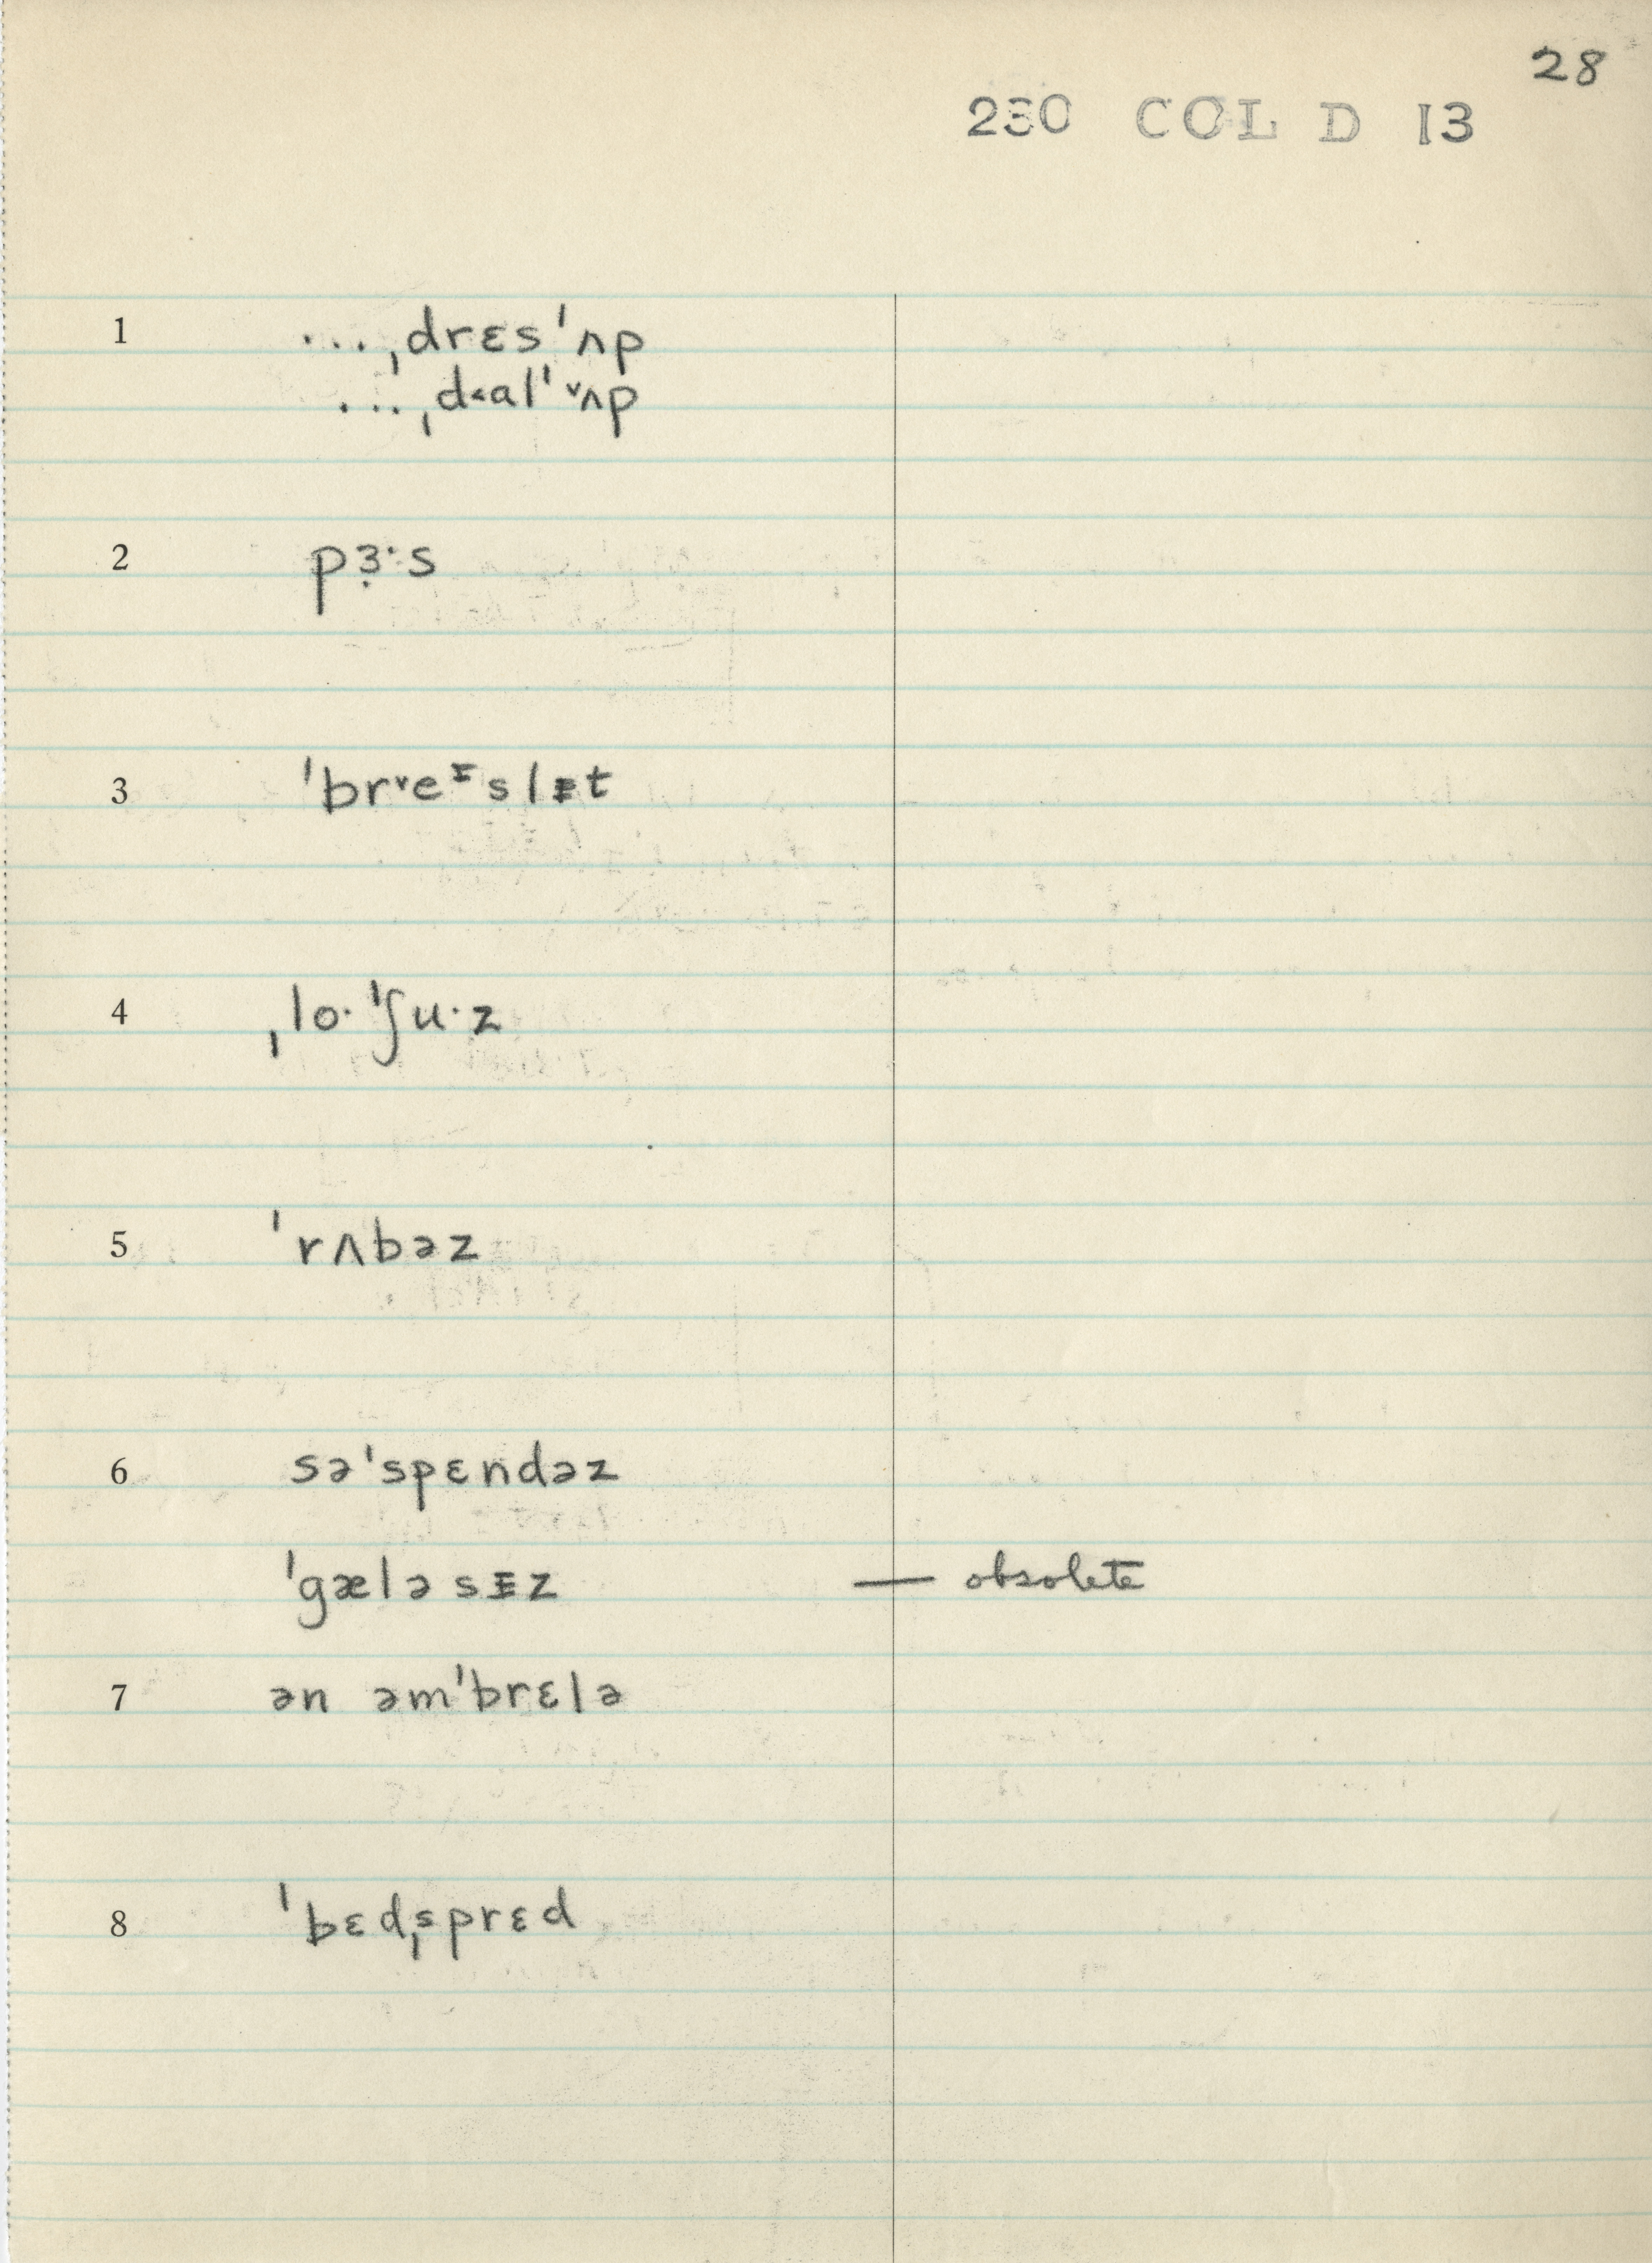 28
230 COL D 13
1 ...ˌdrɛsˈʌp
...ˌd˂alˈ˅ʌp
2 pɜ̣·s
3 ˈbr˅eᵻslᵻt
4 ˌlo·ˈʃu·z
5 ˈrʌbəz
6 səˈspɛndəz
ˈgæləsᵻz — obsolete
7 ən əmˈbrɛlə
8 ˈbɛdˌsprɛd